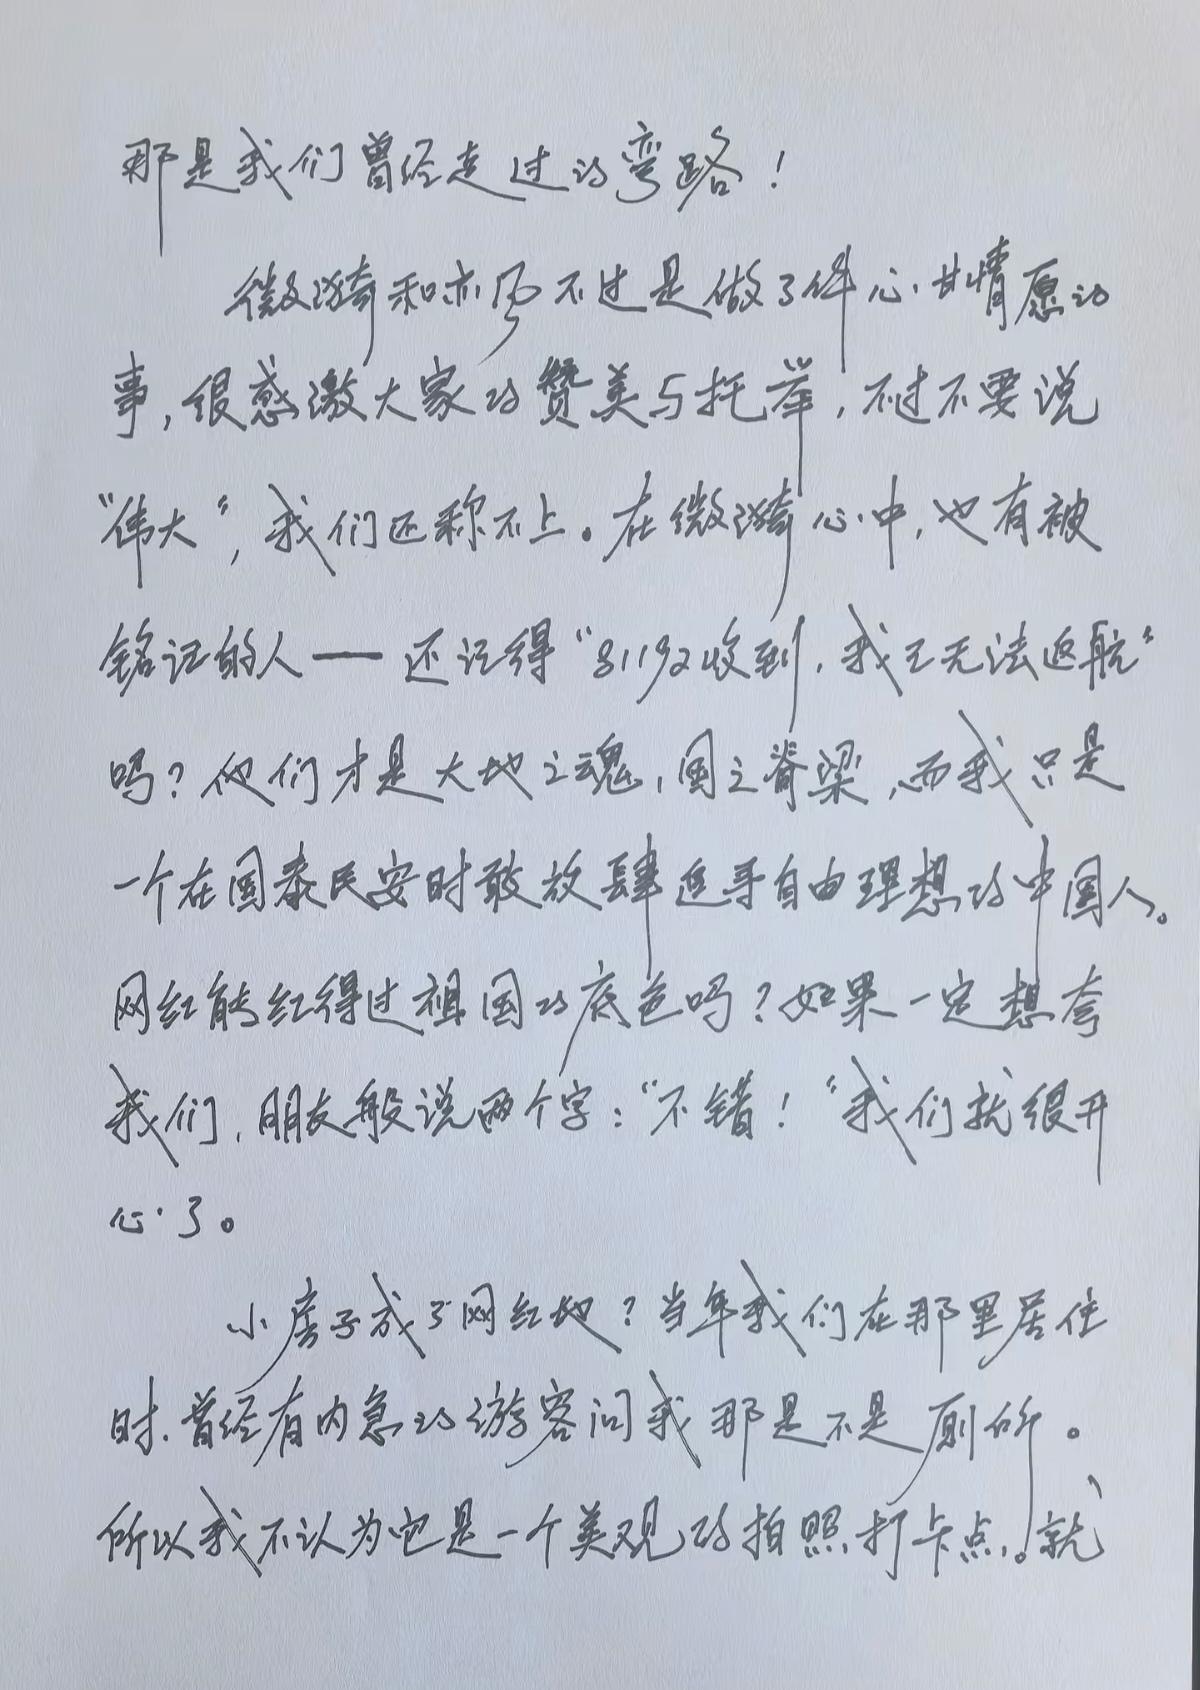 那是我们曾经走过的弯路！
微漪和亦风不过是做了件心甘情愿的
事，很感激大家的赞美与托举，不过不要说
“伟大”，我们还称不上。在微漪心中，也有被
铭记的人——还记得“81192收到，我已无法返航”
吗？他们才是大地之魂，国之脊梁，而我只是
一个在国泰民安时敢放肆追寻自由理想的中国人。
网红能红得过祖国的底色吗？如果一定想夸
我们，朋友般说两个字：“不错！”我们就很开
心了。
小房子成了网红地？当年我们在那里居住
时，曾经有内急的游客问我那是不是厕所。
所以我不认为它是一个美观的拍照打卡点。就